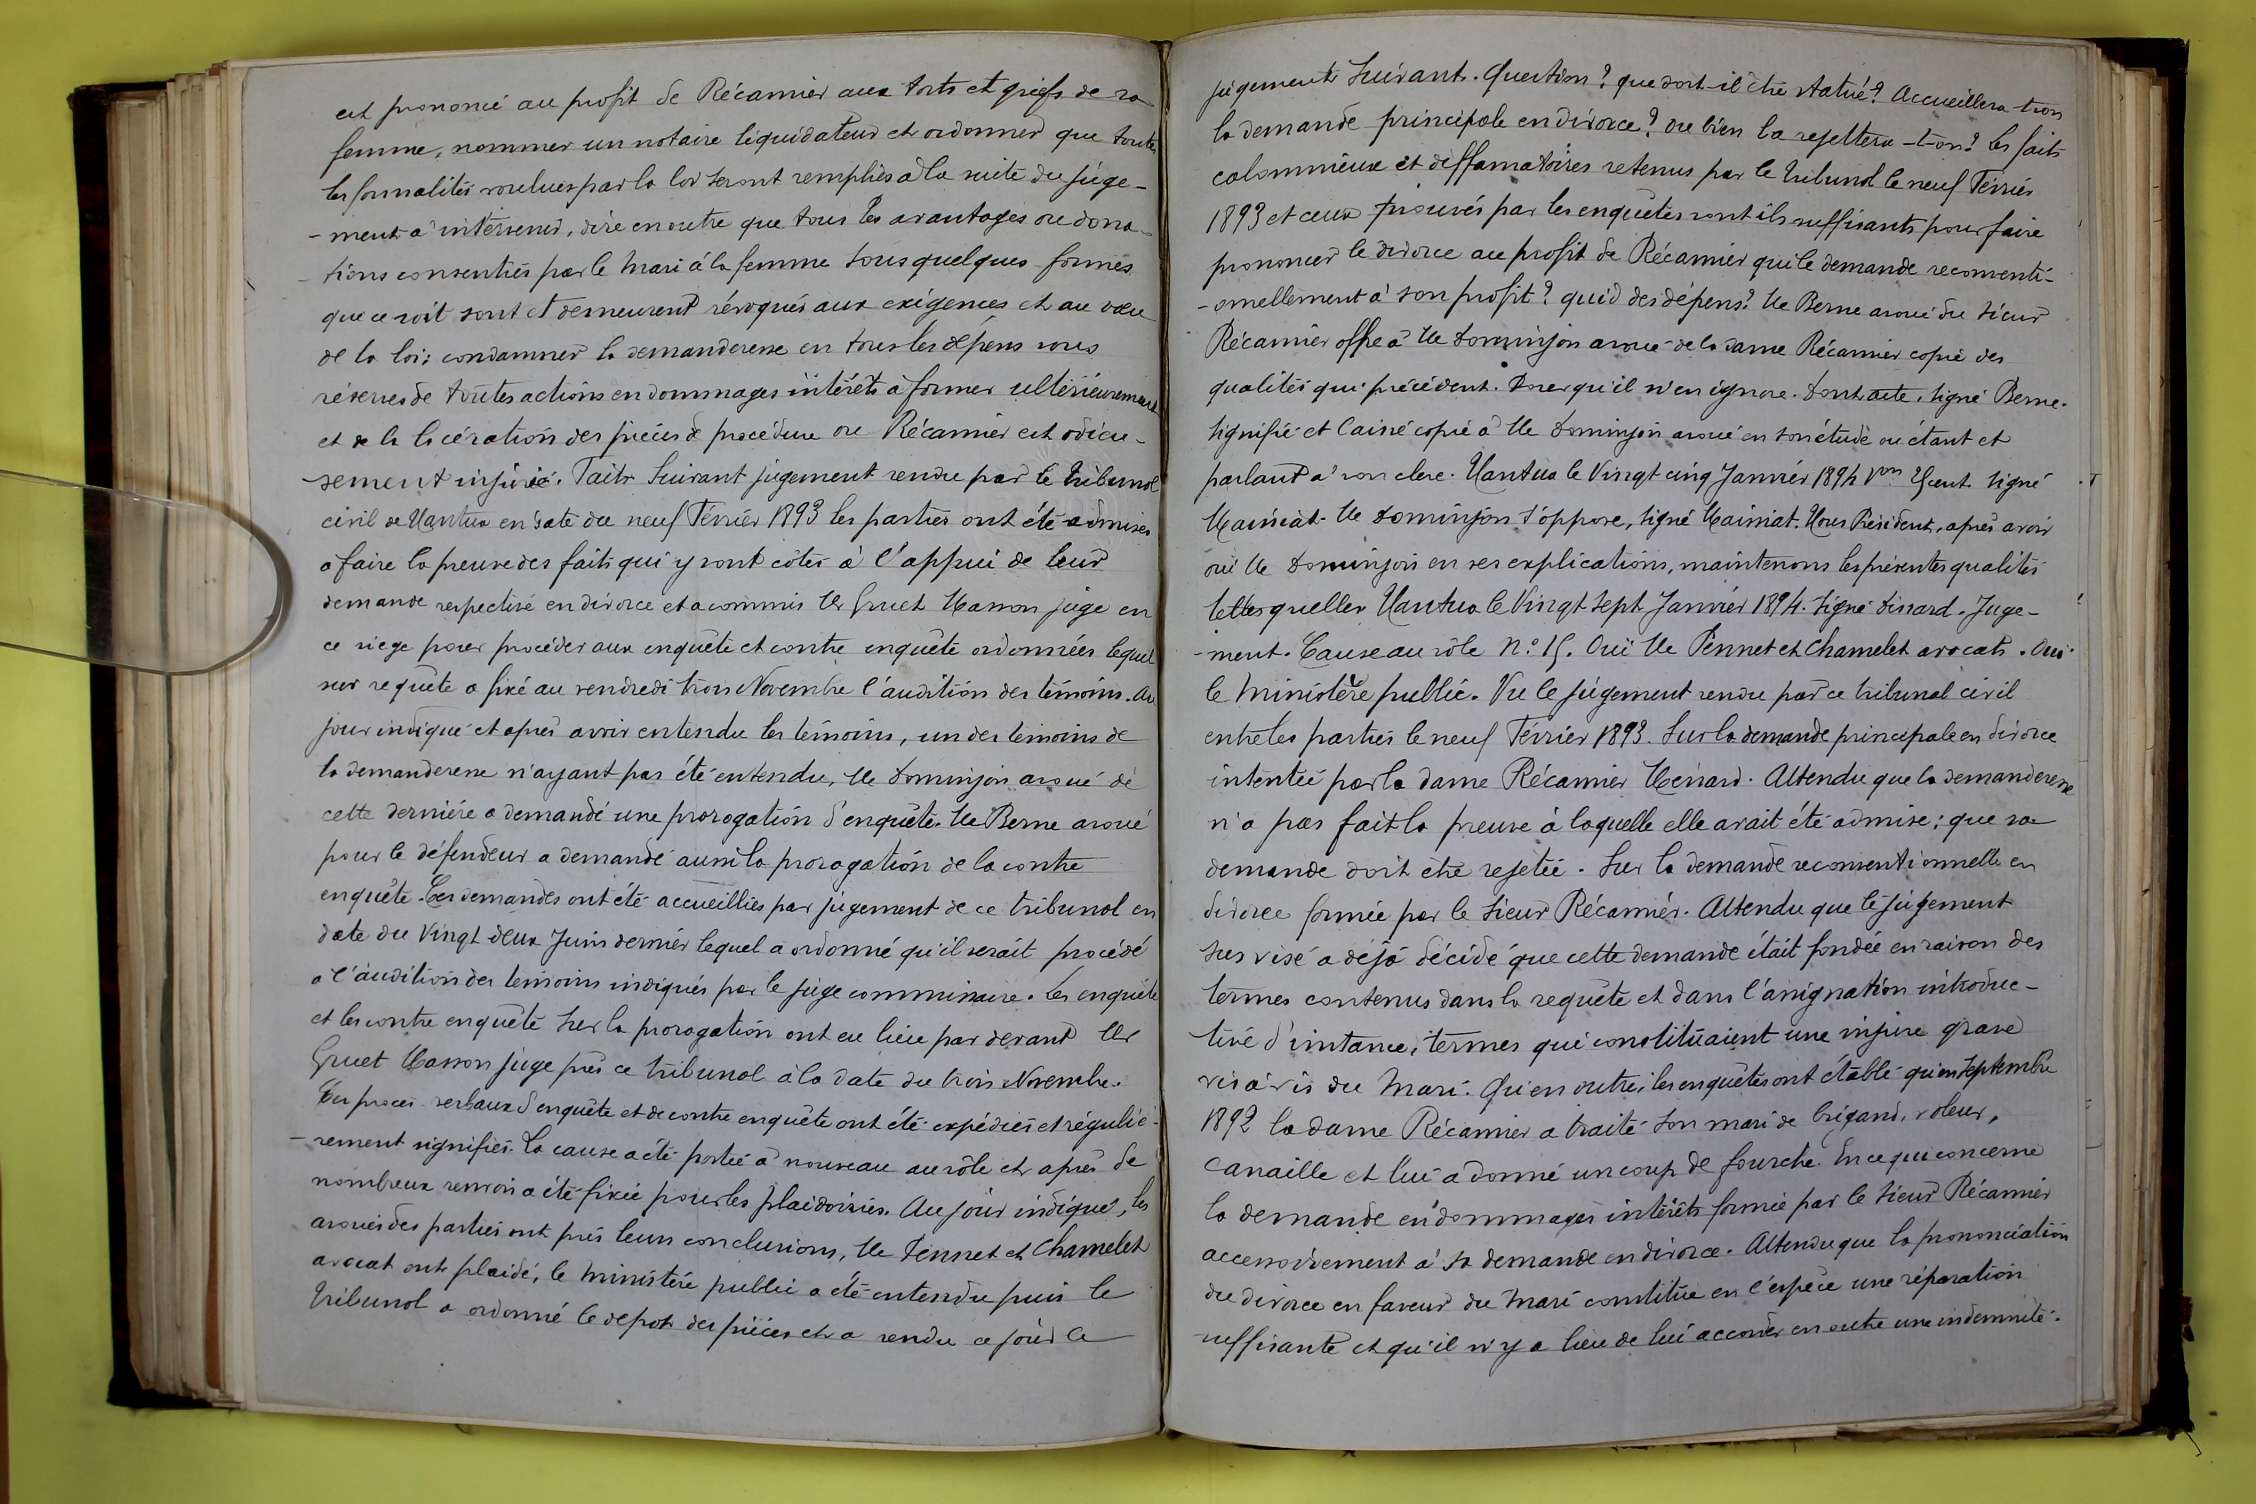 est prononcé au profit de Récamier aux torts et griefs de sa
femme, nommer un notaire liquidateur et ordonner que toutes
les formalités voulues par la loi seront remplies à la suite du juge-
-ment à intervenir, dire en outre que tous les avantages ou dona-
-tions consenties par le mari à la femme sous quelques formes
que ce soit sont et demeurent révoqués aux exigences et au vœu
de la loi; condamner la demanderesse en tous les dépens sous
réserves de toutes actions en dommages intérêts à former ultérieurement
et de la licération des pièces de procédure ou Récamier est odieu-
sement injurié. Faits Suivant jugement rendu par le tribunal
civil de Nantua en date du neuf Février 1893 les parties ont été admises
à faire la preuve des faits qui y sont côtés à l'appui de leur
demande respective en divorce et a commis Mr Gruet Masson juge en
ce siège pour procéder aux enquête et contre enquête ordonnées lequel
sur requête a fixé au vendredi trois Novembre l'audition des témoins. Au
jour indiqué et après avoir entendu les témoins, un des témoins de
la demanderesse n'ayant pas été entendu, Me Dominjon avoué de
cette dernière a demandé une prorogation d'enquête. Me Berne avoué
pour le défendeur a demandé aussi la prorogation de la contre
enquête. Ces demandes ont été accueillies par jugement de ce tribunal en
date du vingt deux Juin dernier lequel a ordonné qu'il serait procédé
à l'audition des témoins indiqués par le juge commissaire. Les enquête
et les contre enquête sur la prorogation ont eu lieu par devant Mr
Gruet Masson juge près ce tribunal à la date du trois Novembre.
Les procès verbaux d'enquête et de contre enquête ont été expédiés et réguliè-
-rement signifiés. La cause a été portée à nouveau au rôle et après de
nombreux renvois a été fixée pour les plaidoiries. Au jour indiqué, les
avoués des parties ont pris leurs conclusions, Me Pennet et Chamelet
avocat ont plaidé, le ministère public a été entendu puis le
tribunal a ordonné le dépot des pièces et a rendu ce jour le
jugement suivant. Question? que doit-il être statué? Accueillera-t-on
la demande principale en divorce? ou bien la rejettera-t-on? Les faits
calomnieux et diffamatoires retenus par le tribunal le neuf Février
1893 et ceux prouvés par les enquêtes sont ils suffisants pour faire
prononcer le divorce au profit de Récamier qui le demande reconventi-
-onnellement à son profit? quid des dépens? Me Berne avoué du sieur
Récamier offre à Me Dominjon avoué de la dame Récamier copie des
qualités qui précèdent. Pour qu'il n'en ignore. Dont acte, signé Berne.
Signifié et laissé copie à Me Dominjon avoué en son étude où étant et
parlant à son clerc. Nantua le Vingt cinq Janvier 1894 signé
Mainiat. Me Dominjon s'oppose, signé Mainiat. Nous Président, après avoir
ouï Me Dominjon en ses explications, maintenons les présentes qualités
telles quelles Nantua le Vingt sept Janvier 1894. Signé Dinard. Juge-
-ment. Cause au rôle N° 15. Ouï Me Pennet et Chamelet avocats. Ouï
le ministère public. Vu le jugement rendu par ce tribunal civil
entre les parties le neuf Février 1893. Sur la demande principale en divorce
intentée par la dame Récamier Ménard. Attendu que la demanderesse
n'a pas fait la preuve à laquelle elle avait été admise; que sa
demande doit être rejetée. Sur la demande reconventionnelle en
divorce formée par le sieur Récamier. Attendu que le jugement
sus visé a déjà décidé que cette demande était fondée en raison des
termes contenus dans la requête et dans l'assignation introduc-
tive d'instance, termes qui constituaient une injure grave
vis à vis du mari. Qu'en outre, les enquêtes ont établi qu'en septembre
1892 la dame Récamier a traité son mari de brigand, voleur,
canaille et lui a donné un coup de fourche. En ce qui concerne
la demande en dommages intérêts formée par le sieur Récamier
accessoirement à sa demande en divorce. Attendu que la prononciation
du divorce en faveur du mari constitue en l'espèce une réparation
suffisante et qu'il n'y a lieu de lui accorder en outre une indemnité.